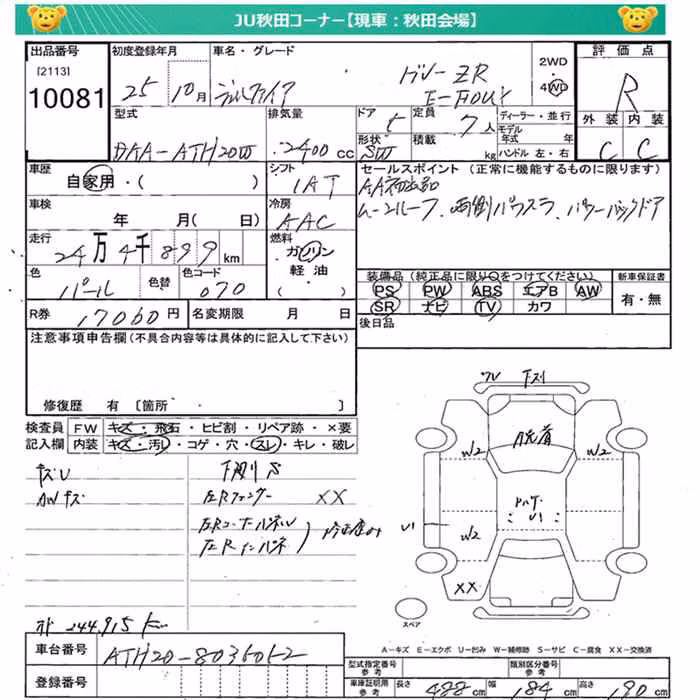 JU秋田コーナー【現車：秋田会場】
出品番号 [2113] 10081
初度登録年月 25 10月
車名・グレード ヴェルファイア ZR
2WD 4WD
評価点 R
外装 内装 C C
型式 DAA-ATH20W
排気量 2400cc
ドア 5 定員 7人
形状 SW 積載 kg
ディーラー・並行
モデル年式 年式
ハンドル 左・右
車歴 自家用・( )
シフト IAT
セールスポイント (正常に機能するものに限ります)
AA初出品
ムーンルーフ、両側パワスラ、パワーバックドア
車検 年 月( 日)
冷房 AAC
走行 24万4千899km
燃料 ガソリン 軽油・( )
色 パール 色替 色コード 070
装備品(純正品に限り○をつけてください)
PS PW ABS エアB AW
SR ナビ TV カワ
新車保証書 有・無
R券 17060円 名変期限 月 日
後日品
注意事項申告欄(不具合内容等は具体的に記入して下さい)
修復歴 有 [箇所 ]
検査員記入欄
FW キズ・飛石・ヒビ割・リペア跡・×要
内装 キズ・汚レ・コゲ・穴・スレ・キレ・破レ
キズU 下廻りS
AWキズ 左Rフェンダー XX
左Rコーナーパネル
左Rインナーパネ
244,915
車台番号 ATH20-8036052
登録番号
W2 W2
U1
U1 W2
XX
スペア
A-キズ E-エクボ U-凹み W-補修跡 S-サビ C-腐食 XX-交換済
型式指定番号 参考 類別区分番号 参考
車庫証明用 参考 長さ 488cm 幅 184cm 高さ 190cm